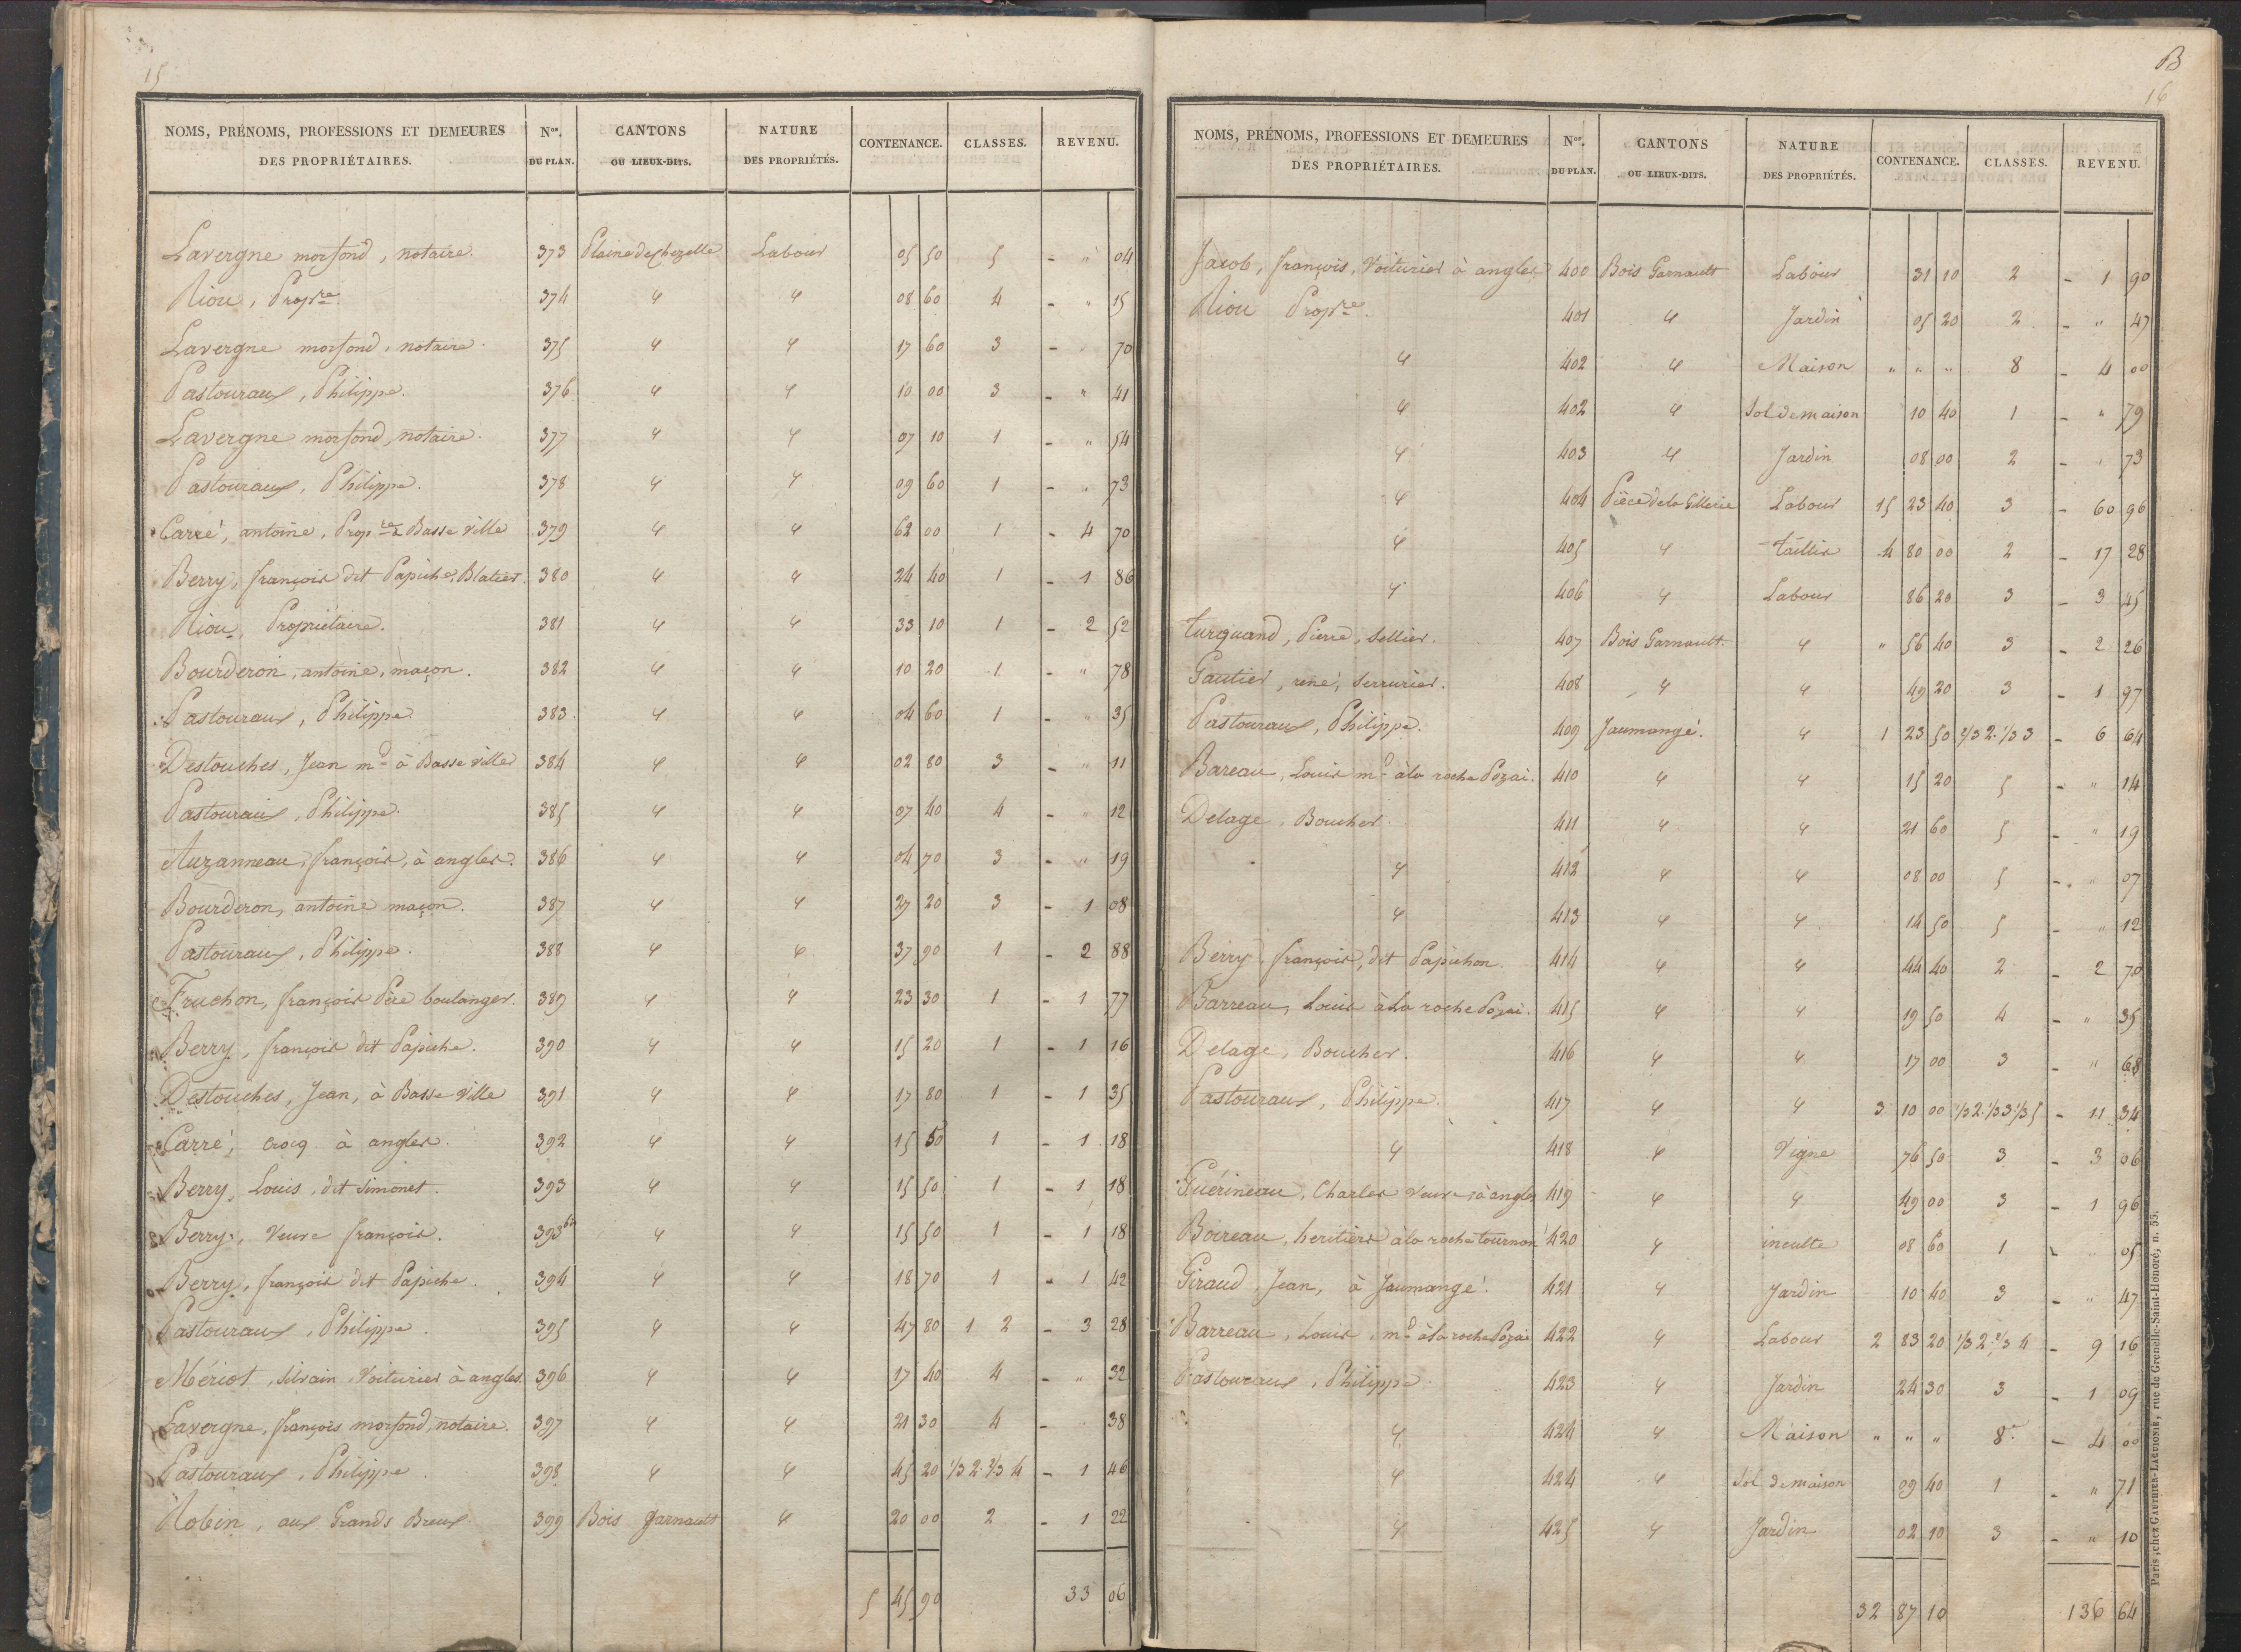 15
NOMS, PRÉNOMS, PROFESSIONS ET DEMEURES DES PROPRIÉTAIRES. Nos. DU PLAN. CANTONS OU LIEUX-DITS. NATURE DES PROPRIÉTÉS. CONTENANCE. CLASSES. REVENU.
Lavergne morfond, notaire. 373 Plaine de Chezelle Labour 05 50 5 - " 04
Riou, Propre 374 " " 08 60 4 - " 15
Lavergne morfond, notaire. 375 " " 17 60 3 - 70
Pastouraux, Philippe. 376 " " 10 00 3 - " 41
Lavergne morfond, notaire. 377 " " 07 10 1 - " 54
Pastouraux, Philippe. 378 " " 09 60 1 - " 73
Carré, antoine, Propre à Basse ville 379 " " 62 00 1 - 4 70
Berry, françois dit Papiche, Blatier. 380 " " 24 40 1 - 1 86
Riou, Propriétaire. 381 " " 33 10 1 - 2 52
Bourderon, antoine, maçon. 382 " " 10 20 1 - " 78
Pastouraux, Philippe. 383 " " 04 60 1 - " 35
Destouches, Jean md à Basse ville 384 " " 02 80 3 - " 11
Pastouraux, Philippe. 385 " " 07 40 4 - " 12
Auzanneau, françois, à angles. 386 " " 04 70 3 - " 19
Bourderon, antoine maçon. 387 " " 27 20 3 - 1 08
Pastouraux, Philippe. 388 " " 37 90 1 - 2 88
Fruchon, françois Père boulanger. 389 " " 23 30 1 - 1 77
Berry, françois dit Papiche. 390 " " 15 20 1 - 1 16
Destouches, Jean, à Basse Ville 391 " " 17 80 1 - 1 35
Carré, crocq à angles. 392 " " 15 50 1 - 1 18
Berry, Louis, dit Simonet. 393 " " 15 50 1 - 1 18
Berry, Veuve françois. 393bis " " 15 50 1 - 1 18
Berry, françois dit Papiche. 394 " " 18 70 1 - 1 42
Pastouraux, Philippe. 395 " " 47 80 1 2 - 3 28
Mériot, silvain, Voiturier à angles. 396 " " 17 40 4 - " 32
Lavergne, françois morfond, notaire. 397 " " 21 30 4 - " 38
Pastouraux, Philippe. 398 " " 45 20 1/3 2. 2/3 4 - 1 46
Robin, aux Grands Breux. 399 Bois Garnault " 20 00 2 - 1 22
5 45 90 33 06
B
16
NOMS, PRÉNOMS, PROFESSIONS ET DEMEURES DES PROPRIÉTAIRES. Nos. DU PLAN. CANTONS OU LIEUX-DITS. NATURE DES PROPRIÉTÉS. CONTENANCE. CLASSES. REVENU.
Jacob, françois, Voiturier à angles 400 Bois Garnault Labour 31 10 2 - 1 90
Riou Propre. 401 " Jardin 05 20 2 - " 47
" 402 " Maison " " " 8 - 4 00
" 402 " Sol de maison 10 40 1 - " 79
" 403 " Jardin 08 00 2 - " 73
" 404 Pièce de la Gillerie Labour 15 23 40 3 - 60 96
" 405 " taillis 4 80 00 2 - 17 28
" 406 " Labour 86 20 3 - 3 45
turquand, Pierre, Sellier. 407 Bois Garnault. " " 56 40 3 - 2 26
Gautier, rené, Serrurier. 408 " " 49 20 3 - 1 97
Pastouraux, Philippe. 409 Jaumangé. " 1 23 50 2/3 2. 1/3 3 - 6 64
Bareau, Louis md à la roche Pozai. 410 " " 15 20 5 - " 14
Delage, Boucher. 411 " " 21 60 5 - " 19
" 412 " " 08 00 5 - " 07
" 413 " " 14 50 5 - " 12
Berry, françois, dit Papichon. 414 " " 44 40 2 - 2 70
Barreau, Louis à la roche Pozai. 415 " " 19 50 4 - " 35
Delage, Boucher. 416 " " 17 00 3 - " 68
Pastouraux, Philippe. 417 " " 3 10 00 1/3 2. 1/3 3. 1/3 5 - 11 34
" 418 " Vigne 76 50 3 - 3 06
Guérineau, Charles Veuve, à angles 419 " " 49 00 3 - 1 96
Boireau, heritiers à la roche tournon 420 " inculte 08 60 1 - " 05
Giraud, Jean, à Jaumangé. 421 " Jardin 10 40 3 - " 47
Barreau, Louis, md à la roche Pozai 422 " Labour 2 83 20 1/3 2. 2/3 4 - 9 16
Pastouraux, Philippe. 423 " Jardin 24 30 3 - 1 09
" 424 " Maison " " " 8e - 4 00
" 424 " Sol de maison 09 40 1 - " 71
" 425 " Jardin 02 10 3 - " 10
32 87 10 136 64
Paris, chez GAUTHIER-LAGUIONIE, rue de Grenelle-Saint-Honoré, n. 55.